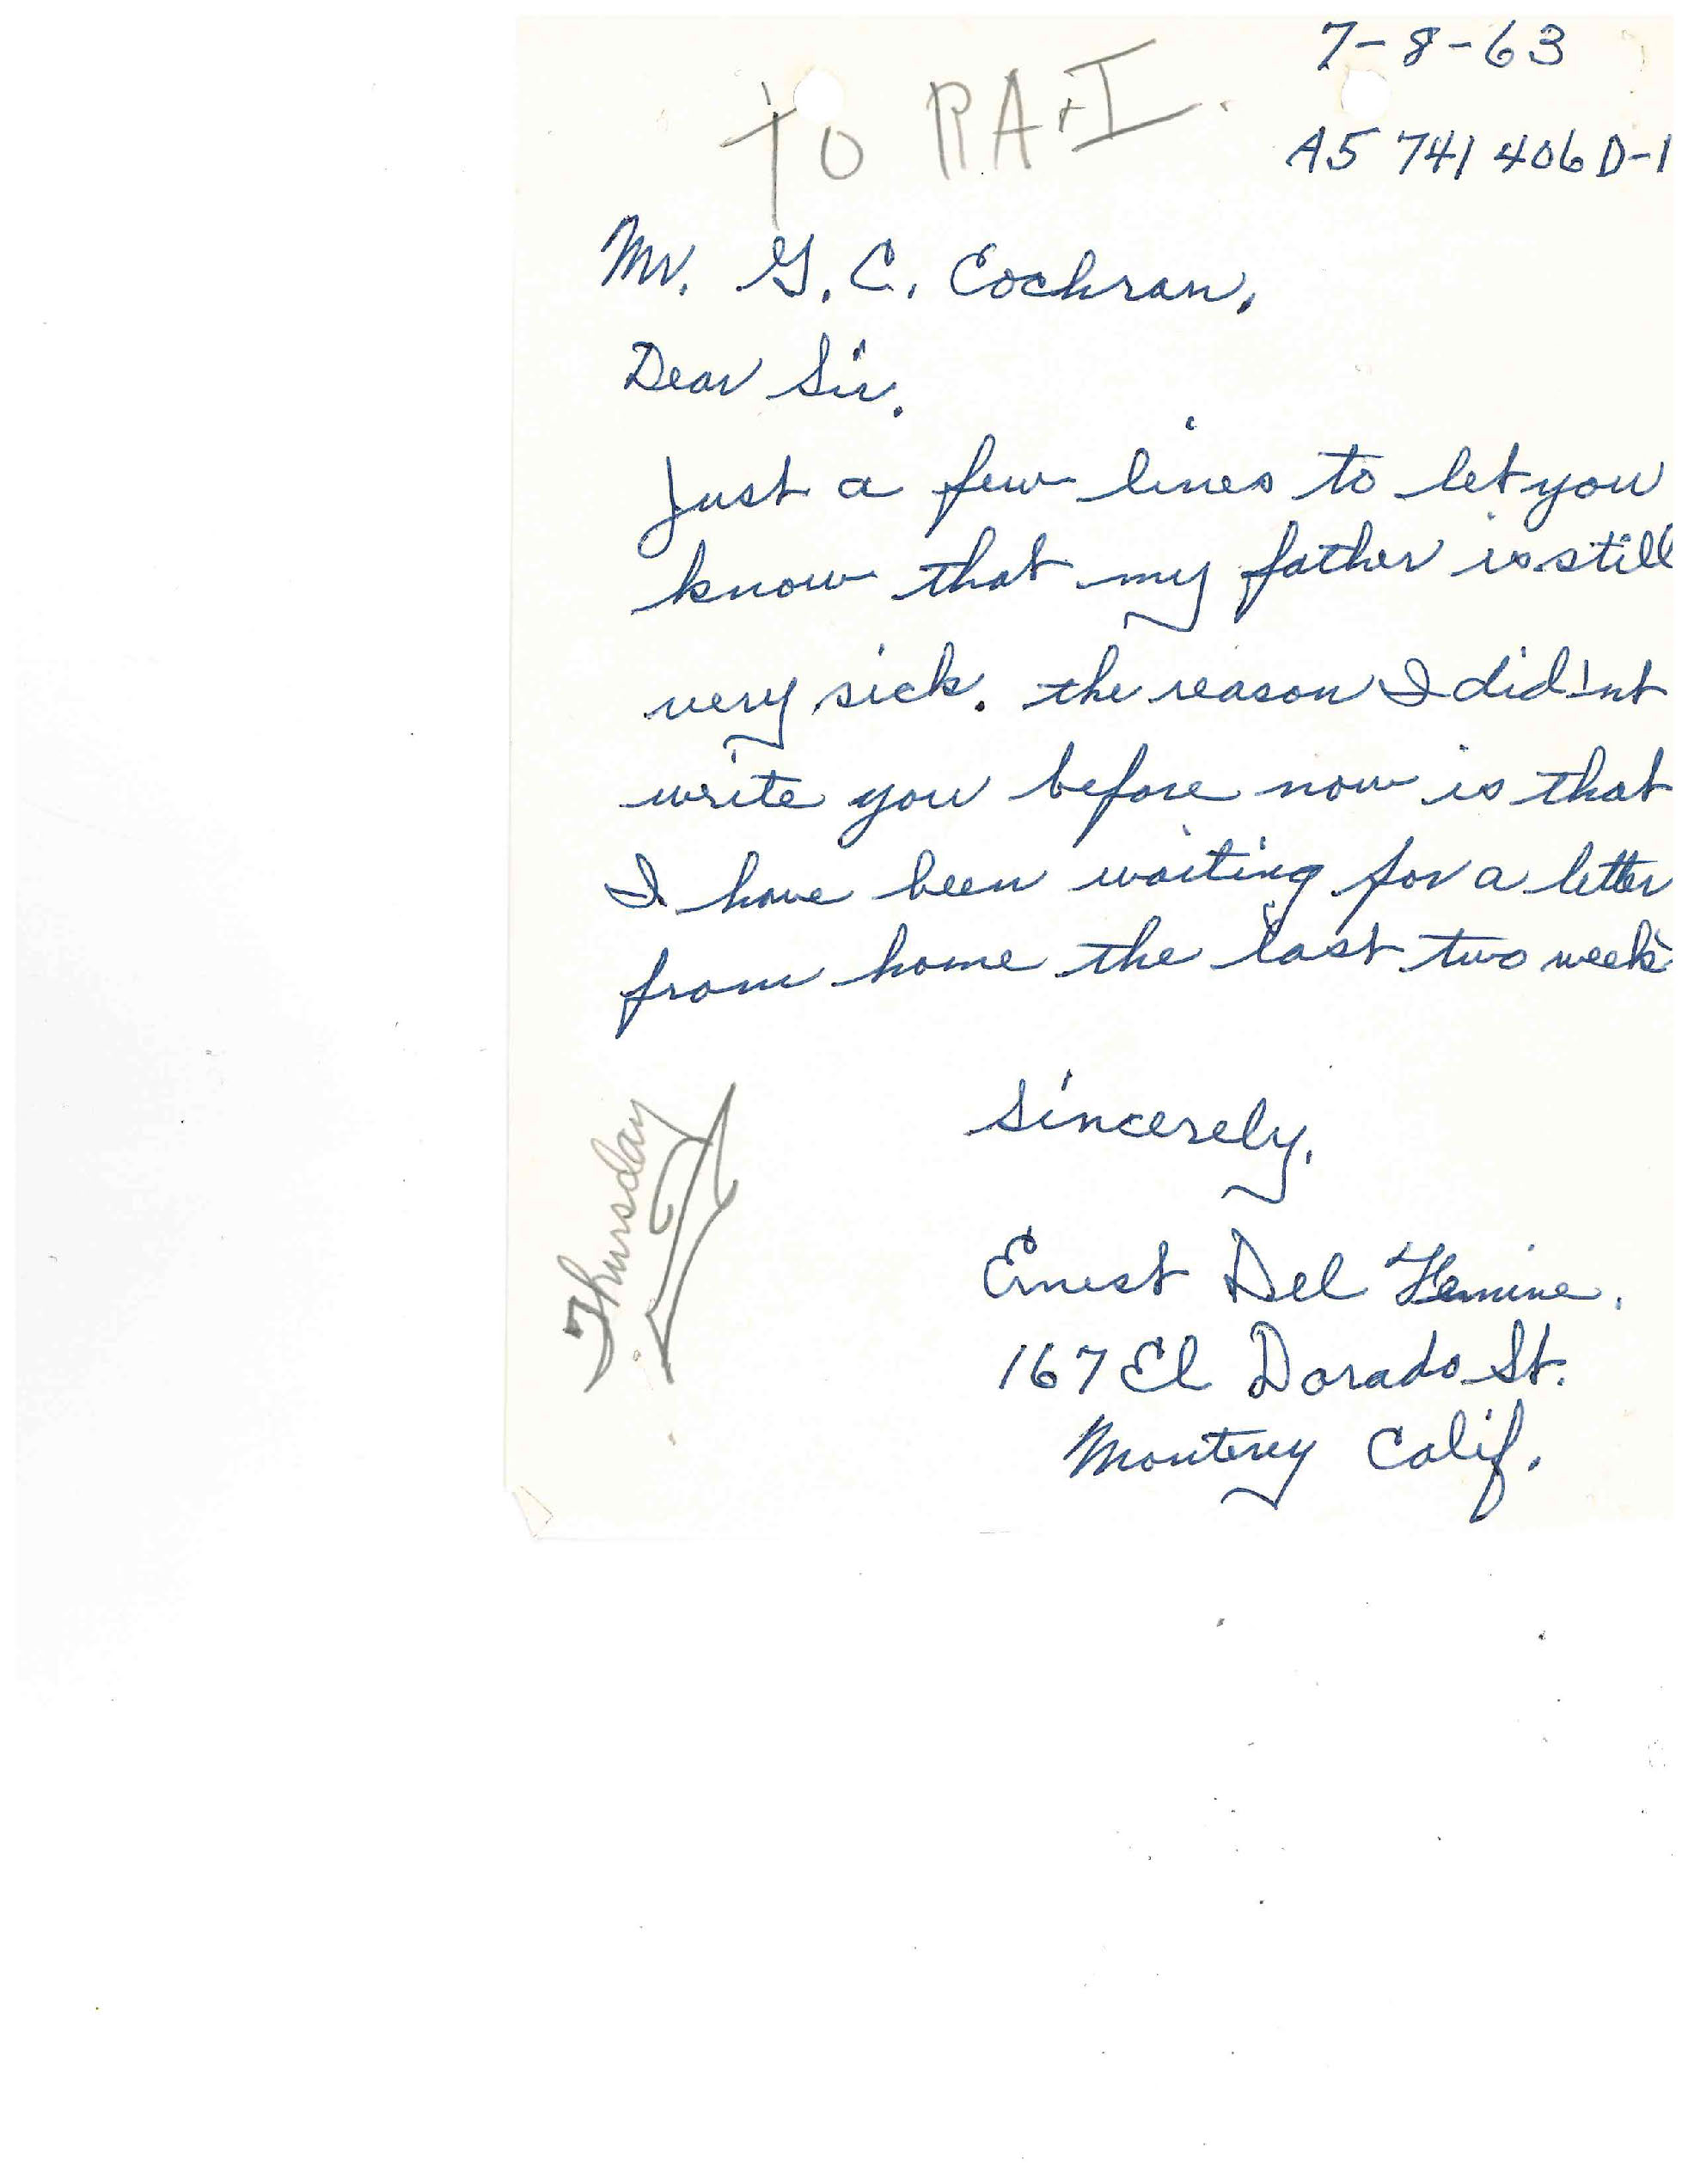 7-8-63
to RA+I.
A5 741 406 D-1
Mr. G. C. Cochran,
Dear Sir.
Just a few lines to let you
know that my father is still
very sick. the reason I did'nt
write you before now is that
I have been waiting for a letter
from home the last two weeks
Sincerely,
Thursday
Ernest Del Femine.
167 El Dorado St.
Monterey Calif.